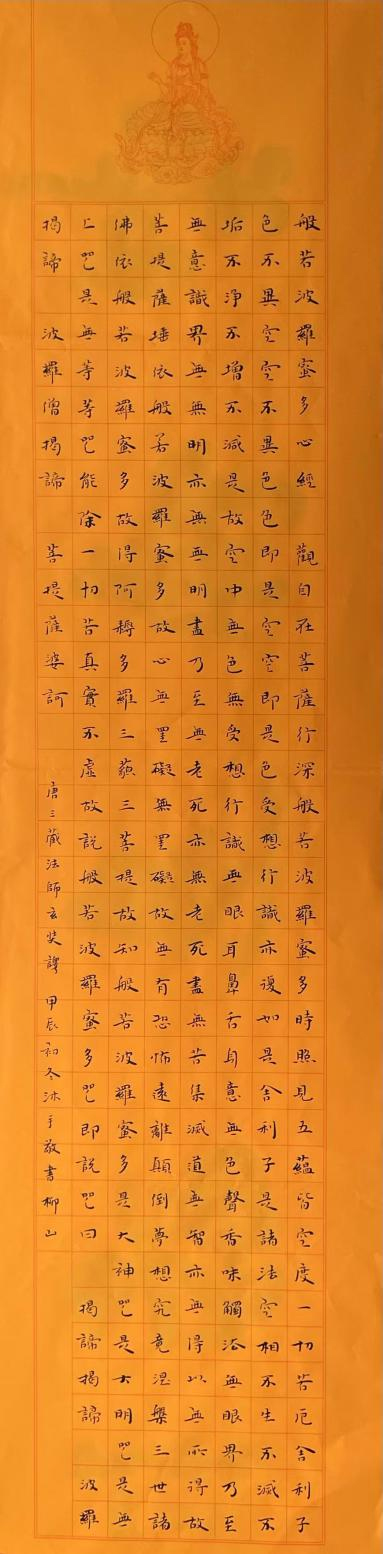 般若波羅蜜多心經 觀自在菩薩行深般若波羅蜜多時照見五蘊皆空度一切苦厄舍利子
色不異空空不異色色即是空空即是色受想行識亦復如是舍利子是諸法空相不生不滅不
垢不淨不增不減是故空中無色無受想行識無眼耳鼻舌身意無色聲香味觸法無眼界乃至
無意識界無無明亦無無明盡乃至無老死亦無老死盡無苦集滅道無智亦無得以無所得故
菩提薩埵依般若波羅蜜多故心無罣礙無罣礙故無有恐怖遠離顛倒夢想究竟涅槃三世諸
佛依般若波羅蜜多故得阿耨多羅三藐三菩提故知般若波羅蜜多是大神咒是大明咒是無
上咒是無等等咒能除一切苦真實不虛故說般若波羅蜜多咒即說咒曰 揭諦揭諦 波羅
揭諦 波羅僧揭諦 菩提薩婆訶
唐三藏法師玄奘譯 甲辰初冬沐手敬書柳山